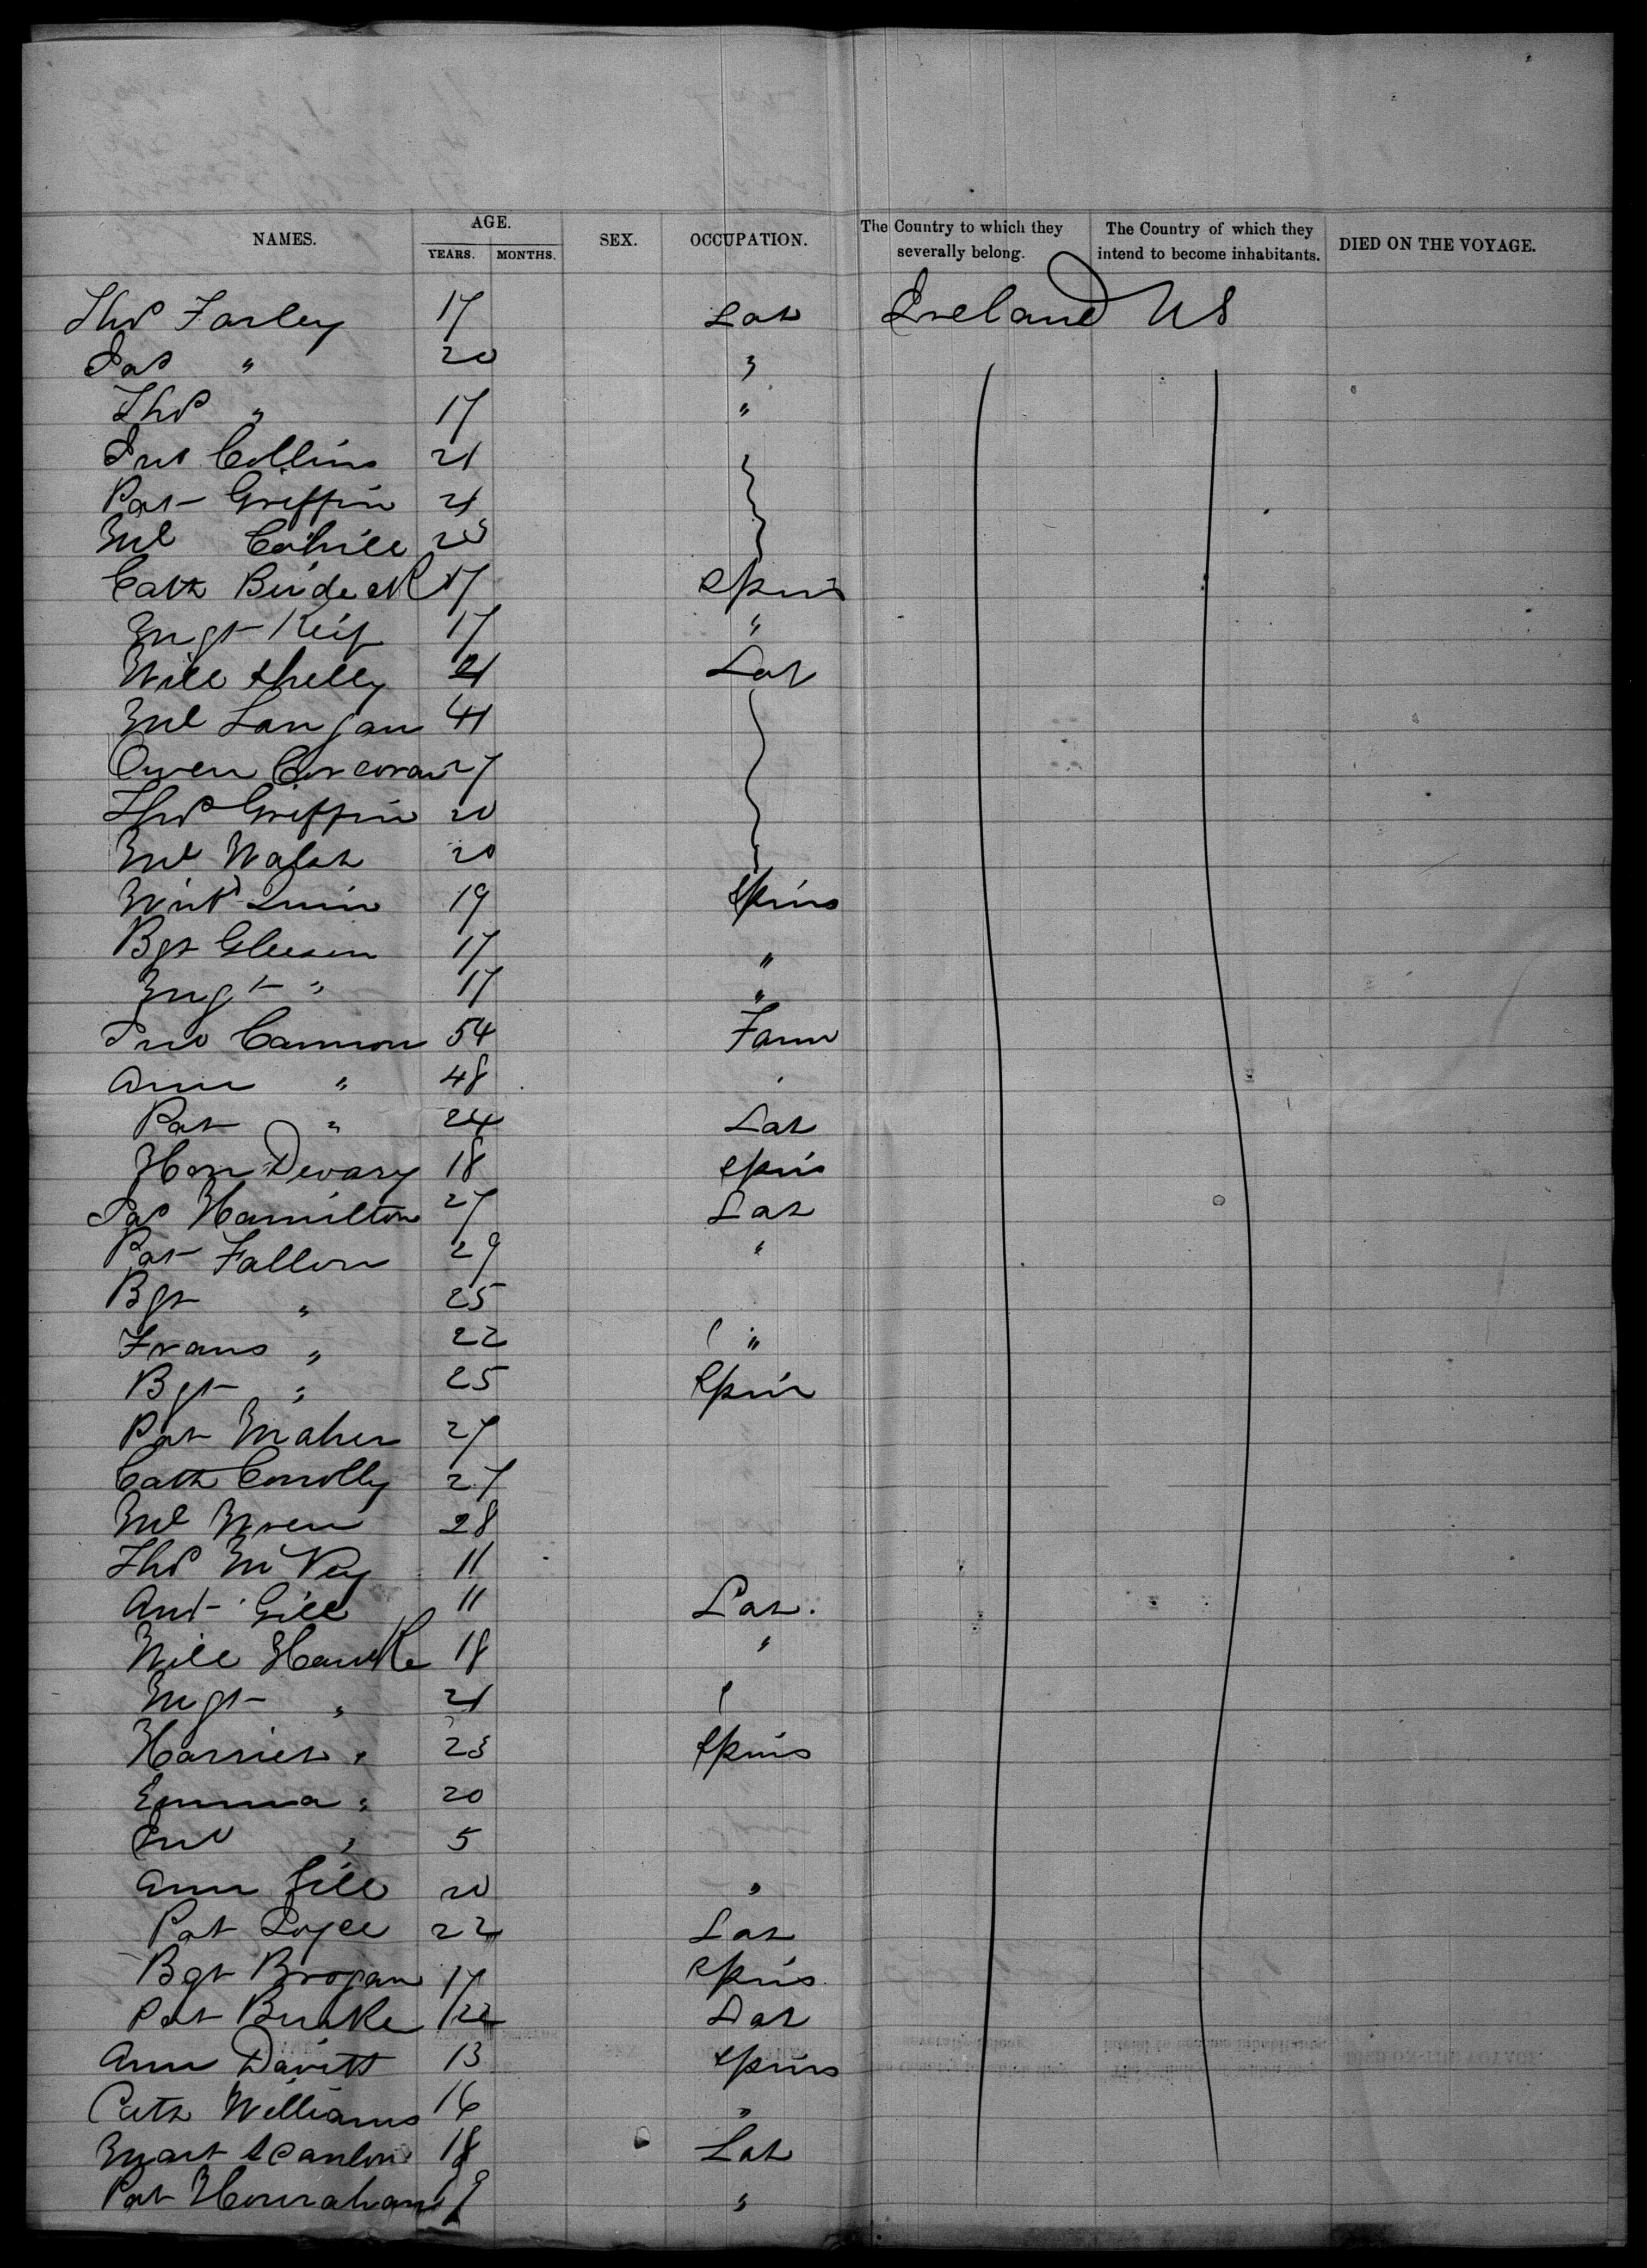 NAMES. AGE. YEARS. MONTHS. SEX. OCCUPATION. The Country to which they severally belong. The Country of which they intend to become inhabitants. DIED ON THE VOYAGE.
Thos Farley 17 Lab Ireland US
Jas " 20 "
Thos " 17 "
Jno Collins 21
Pat Griffin 21
Ml Cahill 25
Cath Burdeck 17 Spins
Mgt Keif 17 "
Will Shelly 21 Lab
Ml Langan 41
Owen Corcoran 27
Thos Griffin 20
Ml Walsh 20
Winfd Quin 19 Spins
Bgt Gleeson 17 "
Mgt " 17 "
Jno Cannon 54 Farm
Ann " 48
Pat " 24 Lab
Hon Devary 18 Spins
Jas Hamilton 27 Lab
Pat Fallon 29 "
Bgt " 25
Frans " 22 "
Bgt " 25 Spin
Pat Maher 27
Cath Conolly 27
Ml Wren 28
Thos McVey 11
And Gill 11 Lab.
Will Hawke 18 "
Mgt " 21
Harriet " 23 Spins
Emma " 20
Jno " 5
Ann Gill 20 "
Pat Joyce 22 Lab
Bgt Brogan 17 Spins
Pat Burke 22 Lab
Ann Davitt 13 Spins
Cath Williams 16 "
Mart Scanlon 18 Lab
Pat Hourahan 19 "